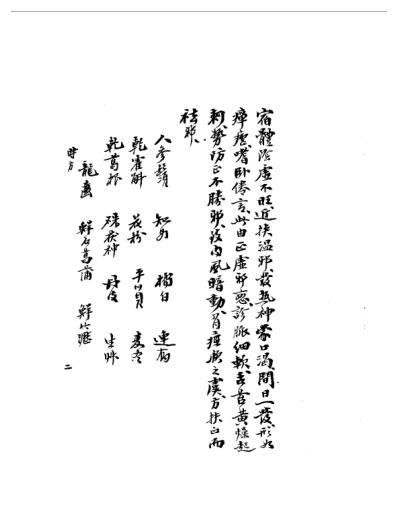 宿體陰虛不旺近挾溫邪發熱神蒙口渴間日一發形如
瘴瘧嗜卧倦言此由正虛邪戀診脈細軟舌苔黃燥起
刺勢防正不勝邪致內風暗動有痙厥之虞方扶正而
祛邪
人參鬚 知母 橘白 連翹
乾霍斛 花粉 平貝 麥冬
乾葛根 硃茯神 丹皮 生
龍齒 鮮石菖蒲 鮮竹瀝
時方
二